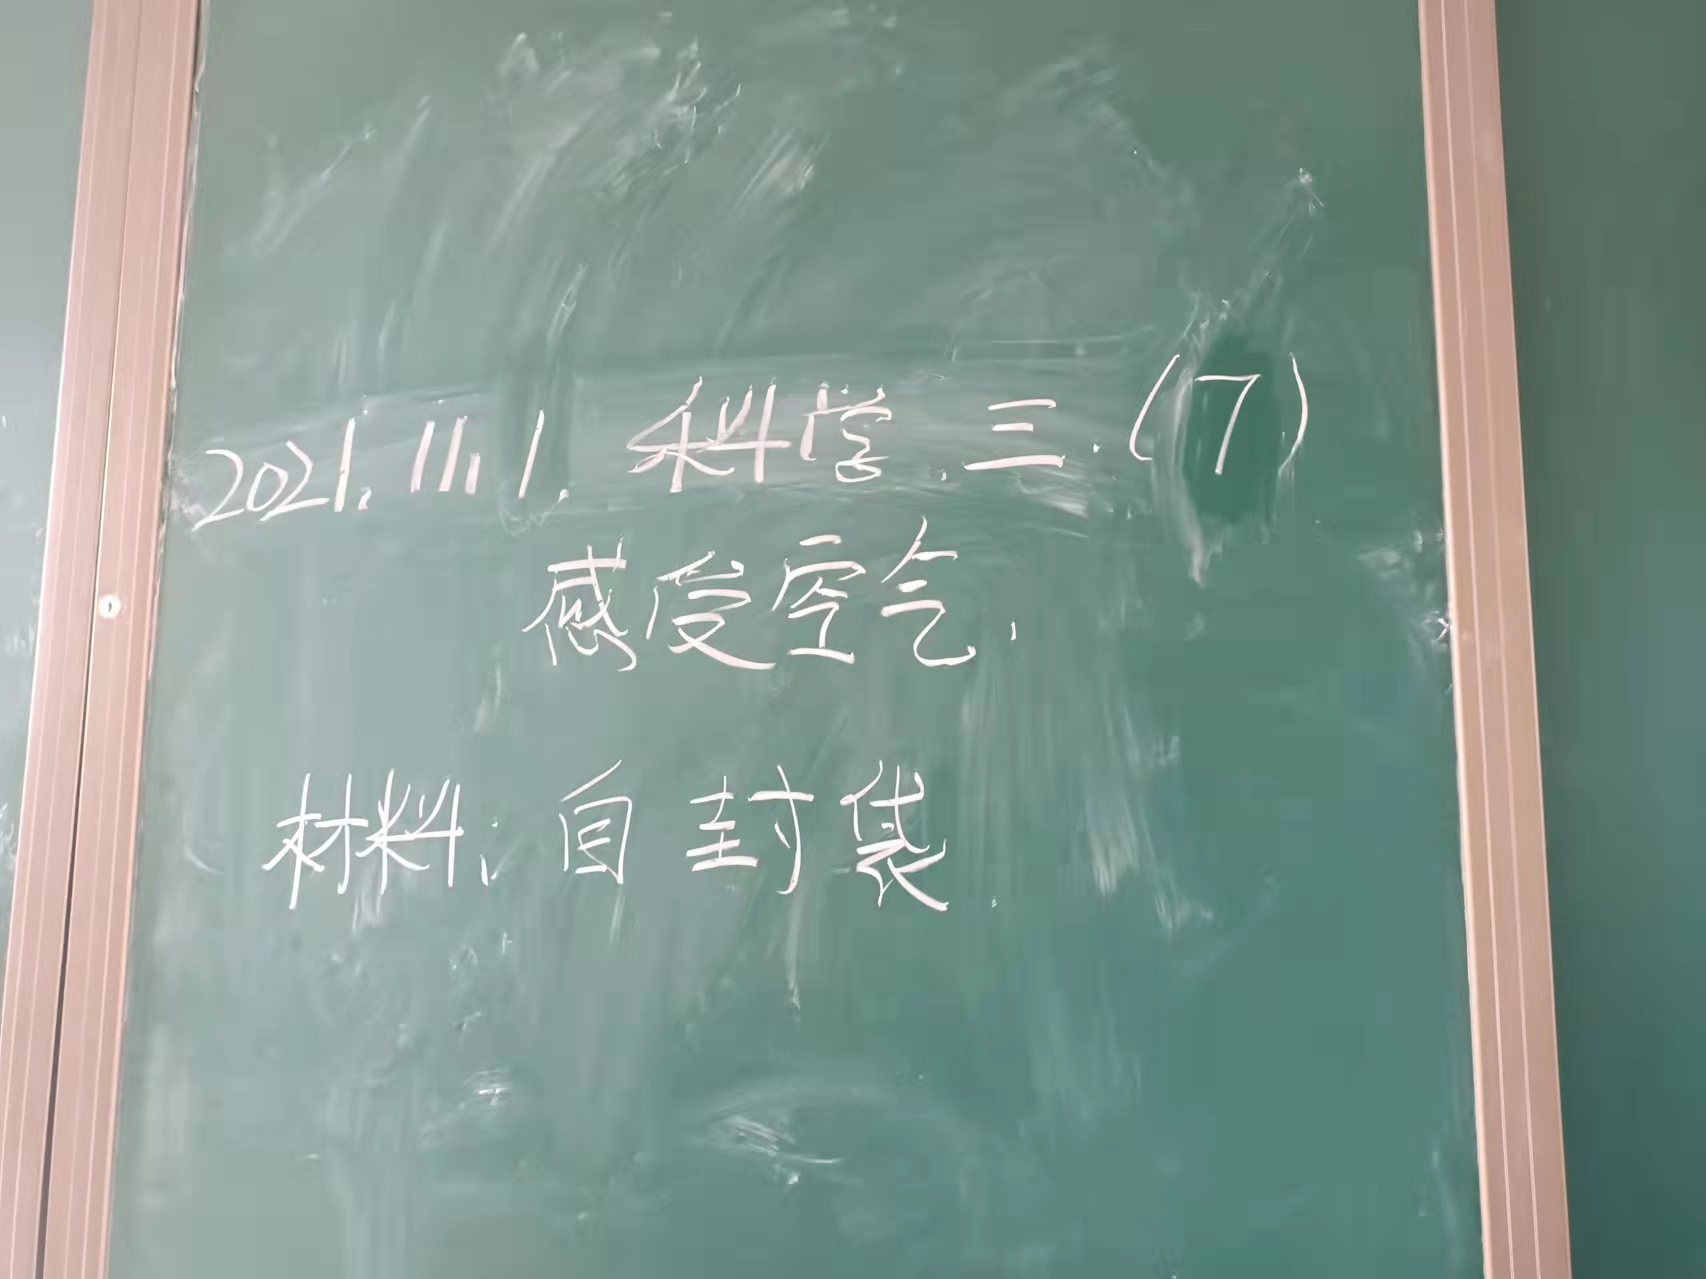 2021.11.1. 科学.三.(7)
感受空气.
材料:自封袋.